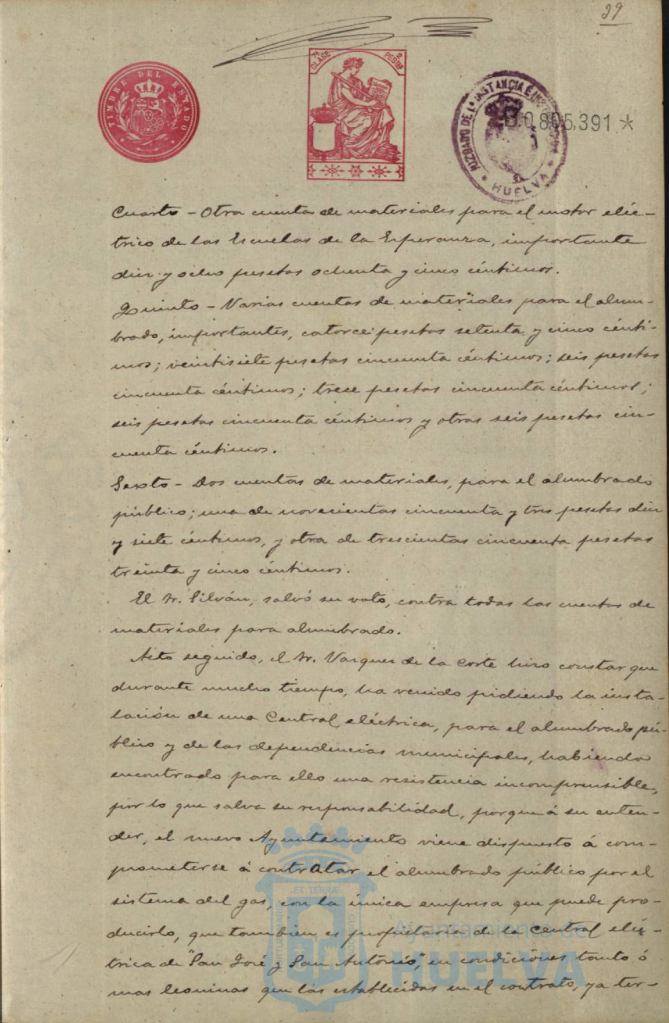 29
TIMBRE DEL ESTADO
7ª CLASE
PESETAS
JUZGADO DE 1ª INSTANCIA É INSTRUCCION
HUELVA
0.805,391 *
Cuarto - Otra cuenta de materiales para el motor eléc-
trico de las Escuelas de la Esperanza, importante
diez y ocho pesetas ochenta y cinco céntimos.
Quinto - Varias cuentas de materiales para el alum-
brado, importantes, catorce pesetas setenta y cinco cénti-
mos; veintisiete pesetas cincuenta céntimos; seis pesetas
cincuenta céntimos; trece pesetas cincuenta céntimos;
seis pesetas cincuenta céntimos y otras seis pesetas cin-
cuenta céntimos.
Sexto - Dos cuentas de materiales, para el alumbrado
público; una de novecientas cincuenta y tres pesetas diez
y siete céntimos, y otra de trescientas cincuenta pesetas
treinta y cinco céntimos.
El Sr. Silván, salvó su voto, contra todas las cuentas de
materiales para alumbrado.
Acto seguido, el Sr. Vazquez de la Corte hizo constar que
durante mucho tiempo, ha venido pidiendo la insta-
lación de una Central eléctrica, para el alumbrado pú-
blico y de las dependencias municipales, habiendo
encontrado para ello una resistencia incomprensible,
por lo que salva su responsabilidad, porque á su enten-
der, el nuevo Ayuntamiento viene dispuesto á com-
prometerse á contratar el alumbrado público por el
sistema del gas, con la única empresa que puede pro-
ducirlo, que tambien es propietaria de la Central eléc-
trica de "San José y San Antonio", en condiciones tanto ó
mas leoninas que las establecidas en el contrato, ya ter-
Ayuntamiento de
HUELVA